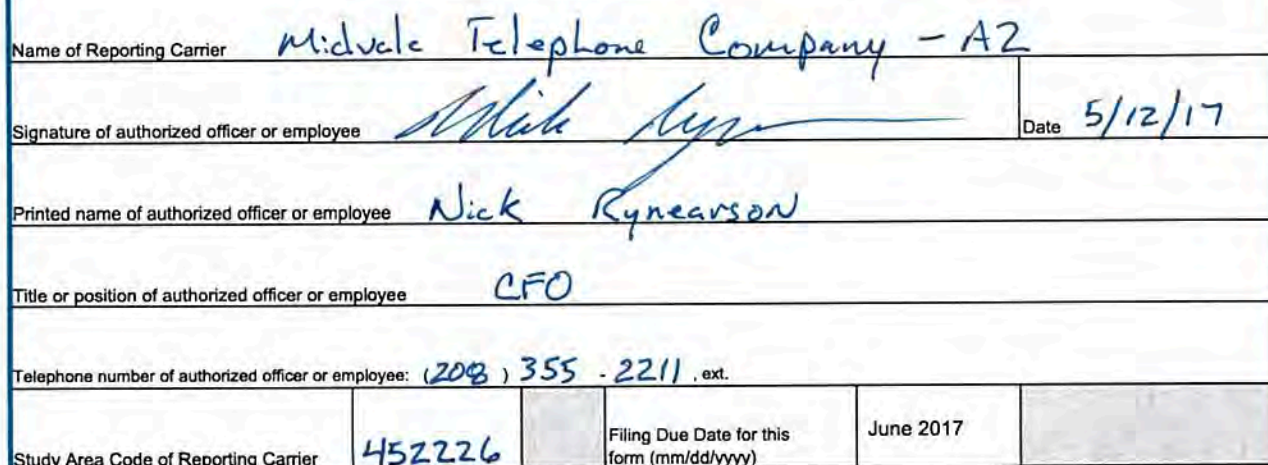 Name of Reporting Carrier Midvale Telephone Company - AZ
Signature of authorized officer or employee Date 5/12/17
Printed name of authorized officer or employee Nick Rynearson
Title or position of authorized officer or employee CFO
Telephone number of authorized officer or employee: (208) 355 - 2211, ext.
Study Area Code of Reporting Carrier 452226 Filing Due Date for this June 2017
form (mm/dd/yyyy)